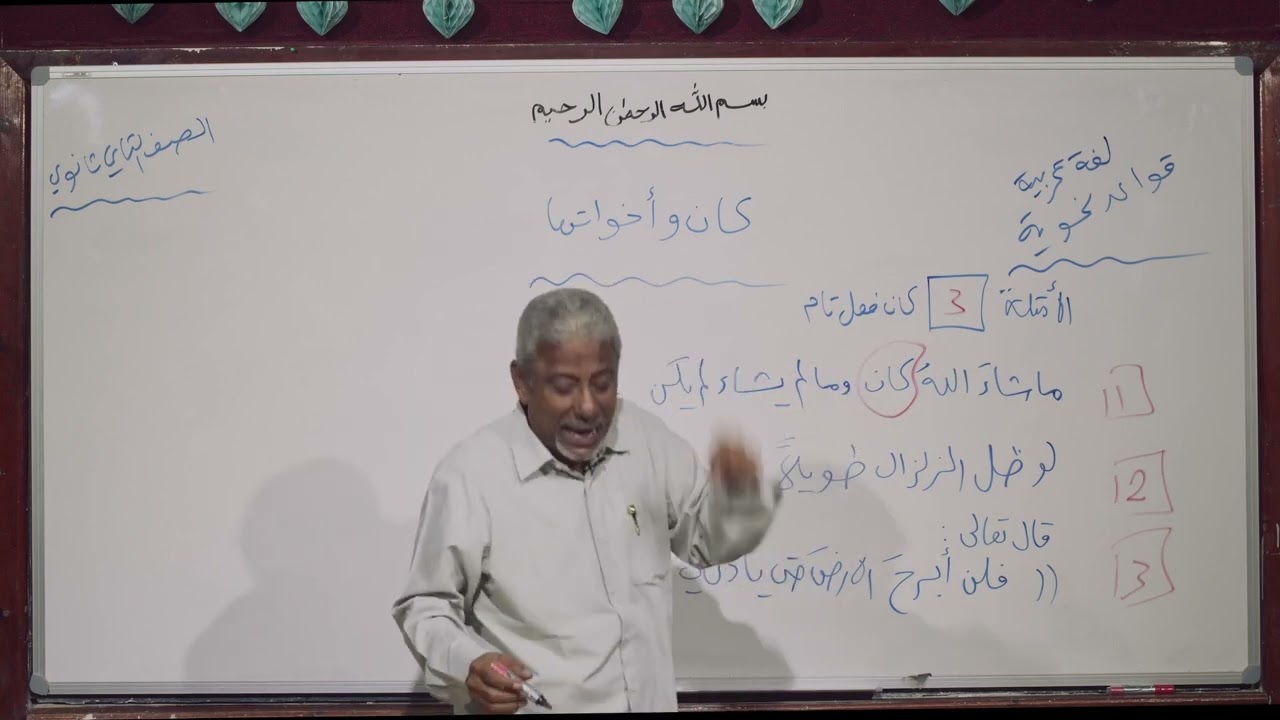 بسم الله الرحمن الرحيم
لغة عربية
قواعد نحوية
الصف الثاني ثانوي
كان وأخواتها
الأمثلة 3 كان فعل تام
11 ما شاءَ اللهُ كان وما لم يشاء لم يكن
12 لو ظل الزلزال طويلاً
قال تعالى :
13 (( فلن أبرحَ الأرضَ حتى يأذن لي